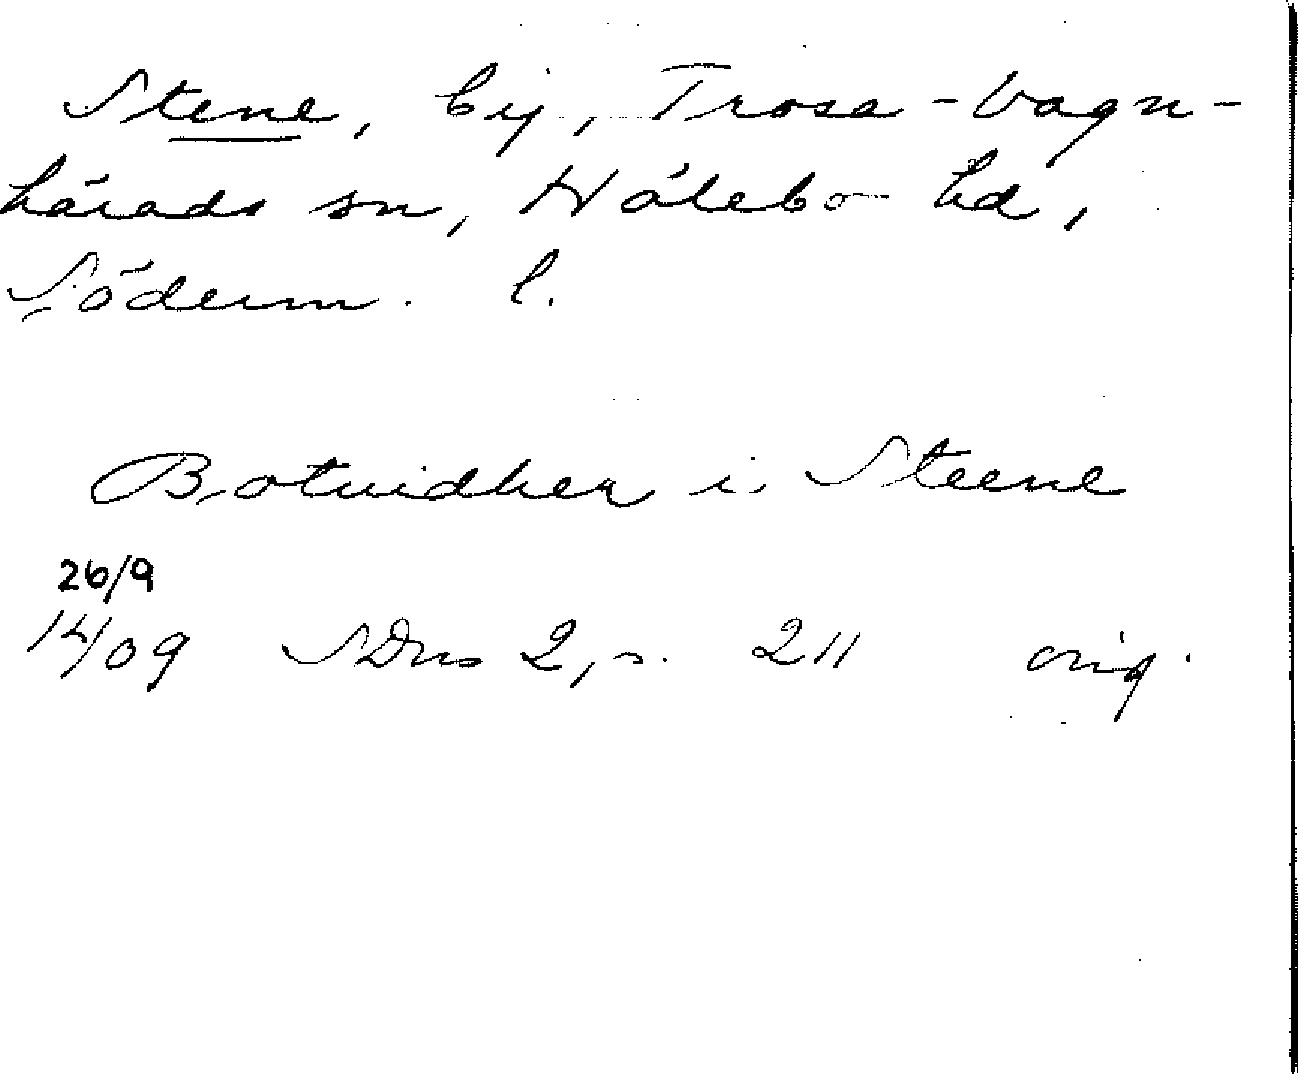 Stene, by, Trosa-Vagn-
härads sn, Hölebo hd,
Söderm. l.
Botuidher i Steene
26/9
14/09 SDns 2, s. 211 orig.